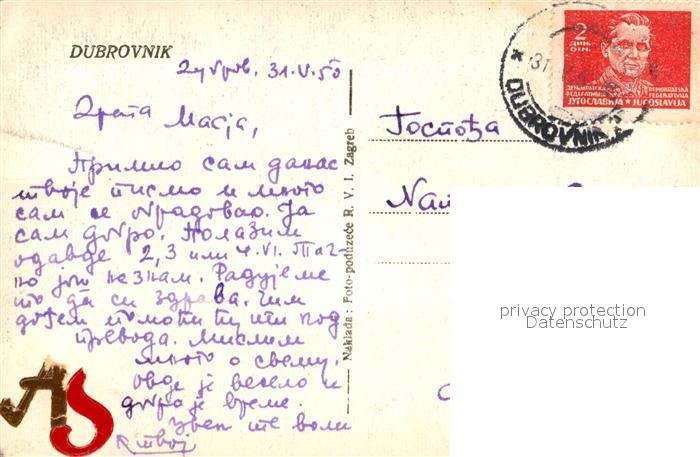 DUBROVNIK
Дубров. 31.V.50
Драга Масја,
Примио сам данас
твоје писмо и много
сам се обрадовао. Ја
сам добро. Полазим
одавде 2, 3 или 4.VI. Тач-
но још не знам. Радује ме
што да си здрава. Чим
дођем помоћи ћу ти код
превода. Мислим
много о свему.
Овде је весело и
добро је време.
Увек те воли
твој
Naklada: Foto-poduzeće R. V. I. Zagreb
Госпођа
2
ДИН.
DIN.
ДЕМОКРАТСКА
ФЕДЕРАТИВНА
DEMOKRATSKA
FEDERATIVNA
ЈУГОСЛАВИЈА ★ JUGOSLAVIJA
DUBROVNIK
privacy protection
Datenschutz
AS